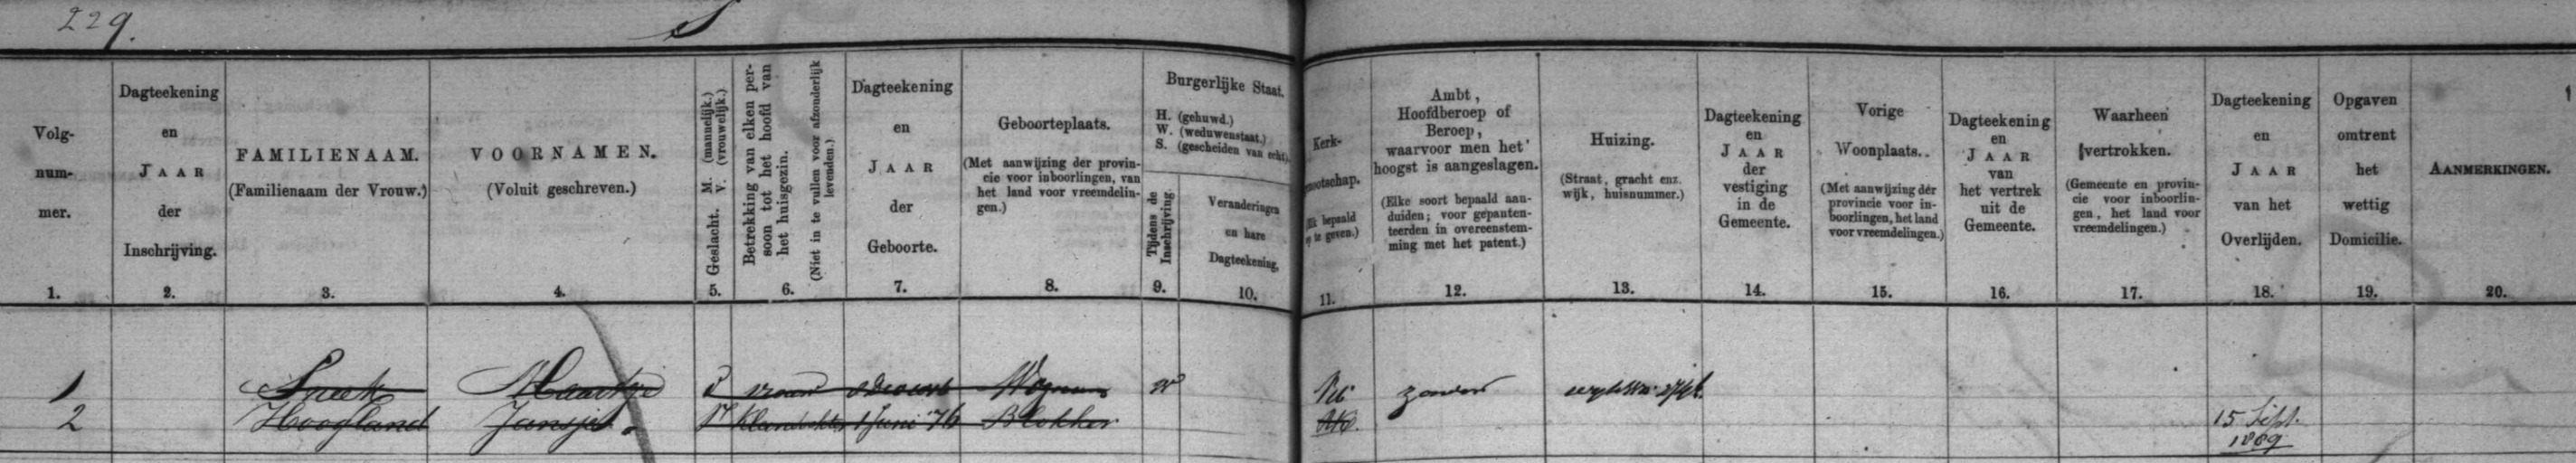 229.
S
Volg-
num-
mer.
Dagteekening
en
JAAR
der
Inschrijving.
FAMILIENAAM.
(Familienaam der Vrouw.)
VOORNAMEN.
(Voluit geschreven.)
Geslacht. M. (mannelijk.)
V. (vrouwelijk.)
Betrekking van elken per-
soon tot het hoofd van
het huisgezin.
(Niet in te vullen voor afzonderlijk
levenden.)
Dagteekening
en
JAAR
der
Geboorte.
Geboorteplaats.
(Met aanwijzing der provin-
cie voor inboorlingen, van
het land voor vreemdelin-
gen.)
Burgerlijke Staat.
H. (gehuwd.)
W. (weduwenstaat.)
S. (gescheiden van echt).
Tijdens de
Inschrijving.
Veranderingen
en hare
Dagteekening.
Kerk-
nootschap.
bepaald
te geven.)
Ambt,
Hoofdberoep of
Beroep,
waarvoor men het
hoogst is aangeslagen.
(Elke soort bepaald aan-
duiden; voor gepanten-
teerden in overeenstem-
ming met het patent.)
Huizing.
(Straat, gracht enz.
wijk, huisnummer.)
Dagteekening
en
JAAR
der
vestiging
in de
Gemeente.
Vorige
Woonplaats.
(Met aanwijzing der
provincie voor in-
boorlingen, het land
voor vreemdelingen.)
Dagteekening
en
JAAR
van
het vertrek
uit de
Gemeente.
Waarheen
vertrokken.
(Gemeente en provin-
cie voor inboorlin-
gen, het land voor
vreemdelingen.)
Dagteekening
en
JAAR
van het
Overlijden.
Opgaven
omtrent
het
wettig
Domicilie.
AANMERKINGEN.
1. 2. 3. 4. 5. 6. 7. 8. 9. 10. 11. 12. 13. 14. 15. 16. 17. 18. 19. 20.
1 Sneek Maartje V vrouw Wognum W zonder
2 Hoogland Jansje V Kleindochter 1 Juni 76 Blokker 15 Sept.
1889